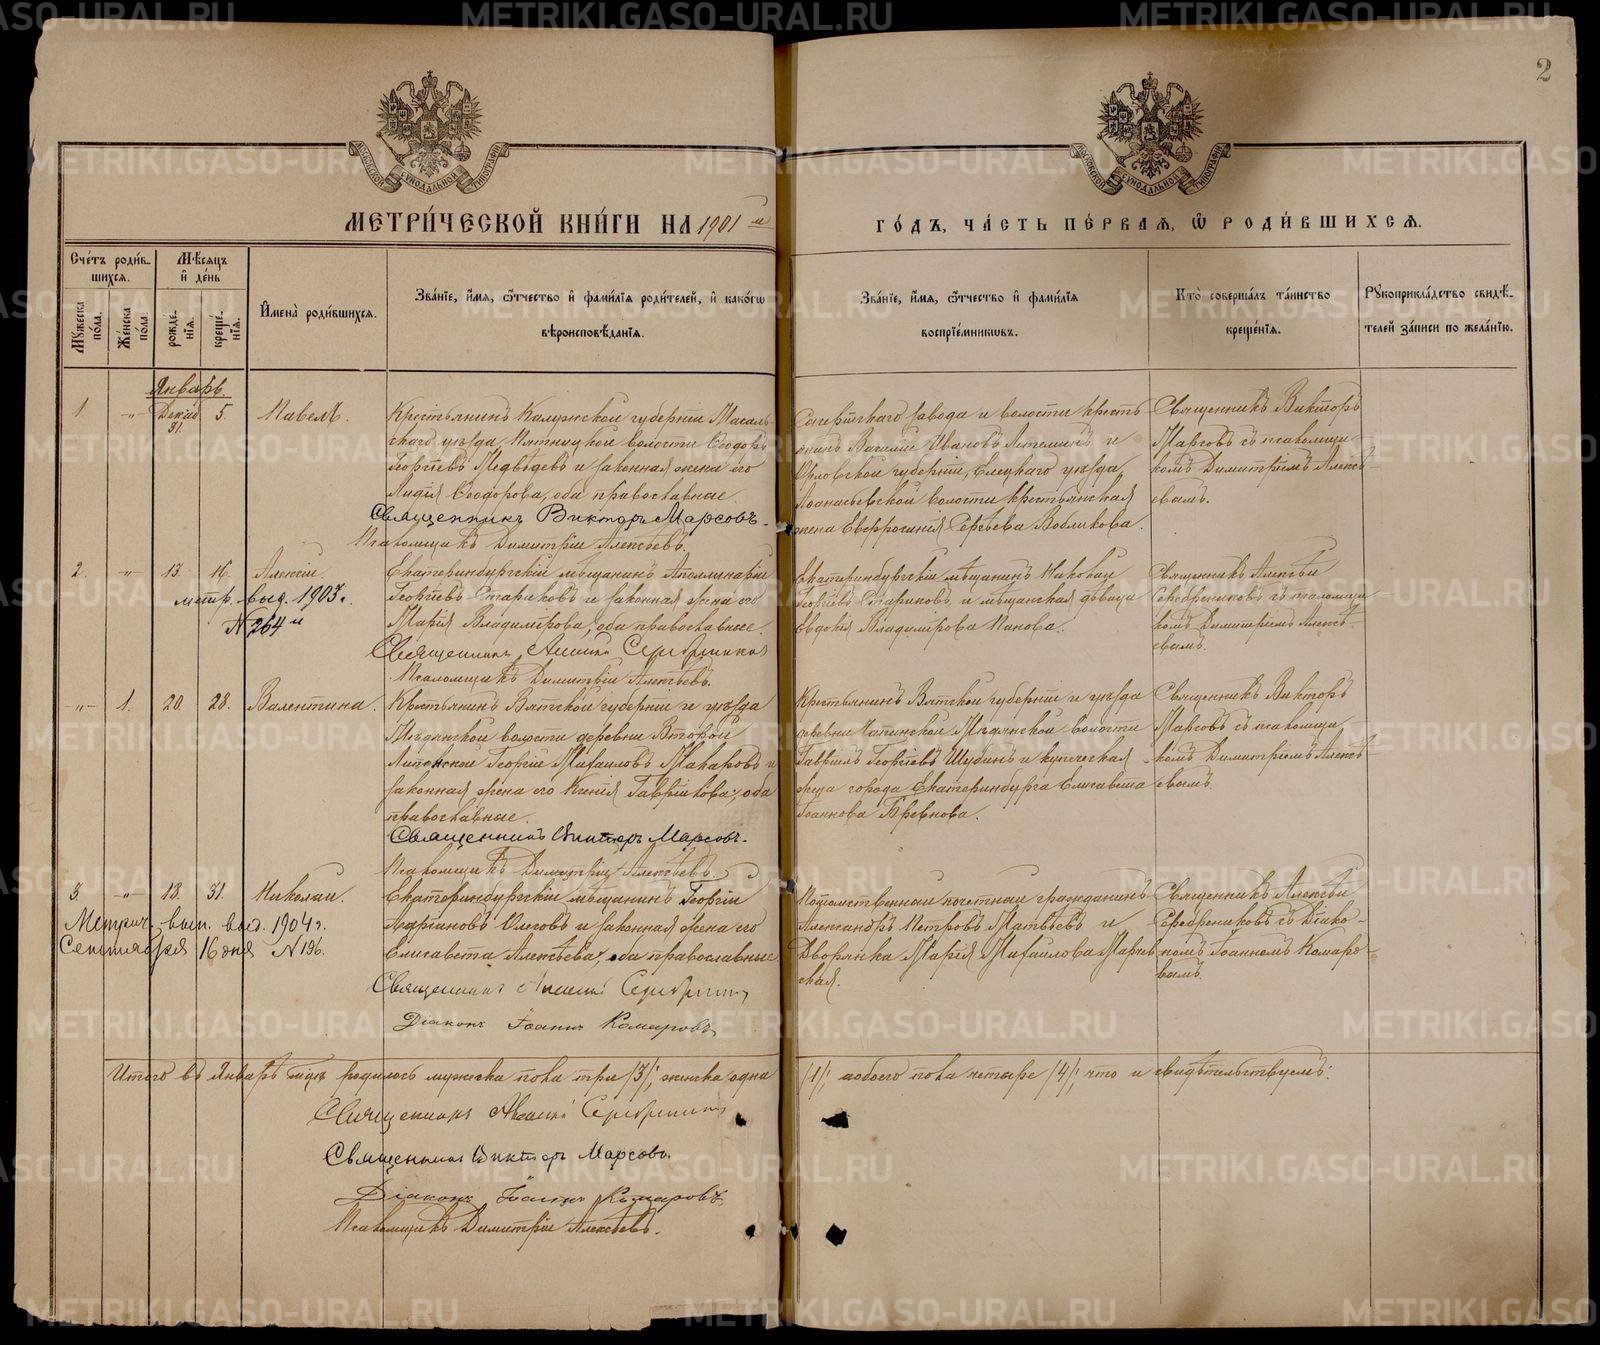 2
МОСКОВСКОЙ СѴНОДАЛЬНОЙ ТИПОГРАФІИ
МОСКОВСКОЙ СѴНОДАЛЬНОЙ ТИПОГРАФІИ
МЕТРИ́ЧЕСКОЙ КНИ́ГИ НА 1901 й
ГО́ДЪ, ЧА́СТЬ ПЕ́РВАѦ, Ѡ РОДИ́ВШИХСѦ.
Сче́тъ роди́в-
шихсѧ.
Мѣ́сѧцъ
и де́нь
Мꙋ́жеска по́ла.
Же́нска по́ла.
рожде́нїѧ.
креще́нїѧ.
Имена̀ роди́вшихсѧ.
Зва́нїе, и́мѧ, ѻ́тчество и фами́лїѧ роди́телей, и како́гѡ
вѣроисповѣ́данїѧ.
Зва́нїе, и́мѧ, ѻ́тчество и фами́лїѧ
воспрїе́мникѡвъ.
Кто̀ соверша́лъ та́инство
креще́нїѧ.
Рꙋкоприкла́дство свидѣ́-
телей за́писи по жела́нїю.
Январь.
1. -"- Декаб 31. 5. Павелъ.
Крестьянинъ Калужской губерніи Масаль-
скаго уѣзда, Пятницкой волости Ѳеодоръ
Георгіевъ Медвѣдевъ и законная жена его
Лидія Ѳеодорова, оба православные.
Священникъ Викторъ Марсовъ.
Псаломщикъ Димитрій Алексѣевъ.
завода и волости кресть
янинъ Василій Ивановъ и
Орловской губерніи, Елецкаго уѣзда,
Аѳанасьевской волости крестьянская
жена Евфросинія Сергѣева Вобликова.
Священникъ Викторъ
Марсовъ съ псаломщи
комъ Димитріемъ Алексѣ-
евымъ.
2. -"- 13. 16. Алексій
метр. выд. 1903 г.
№ 264 й
Екатеринбургскій мѣщанинъ Аполлинарій
Георгіевъ Стариковъ и законная жена его
Марія Владимірова, оба православные.
Священникъ Алексій Серебренников
Псаломщикъ Димитрій Алексѣевъ.
Екатеринбургскій мѣщанинъ Николай
Георгіевъ Стариковъ, и мѣщанская дѣвица
Евдокія Владимірова Панова.
Священникъ Алексѣй
Серебрениковъ съ псаломщи
комъ Димитріемъ Алексѣ-
евымъ.
-"- 1. 20. 28. Валентина.
Крестьянинъ Вятской губерніи и уѣзда
Мѣдянской волости деревни Второй
Георгій Михаиловъ Макаровъ и
законная жена его Ксенія Гавріилова, оба
православные.
Священникъ Викторъ Марсовъ.
Псаломщикъ Димитрій Алексѣевъ.
Крестьянинъ Вятской губерніи и уѣзда
деревни Мѣдянской волости
Гавріилъ Георгіевъ Шубинъ и купеческая
жена города Екатеринбурга Елисавета
Іоаннова Бревнова.
Священникъ Викторъ
Марсовъ съ псаломщи
комъ Димитріемъ Алексѣ
евымъ.
3. -"- 18. 31. Николай.
Метрич. вып. выд. 1904 г.
Сентября 16 дня № 196.
Екатеринбургскій мѣщанинъ Георгій
Адріановъ и законная жена его
Елисавета Алексѣева, оба православные
Священникъ Алексій Серебренник
Діаконъ Іоаннъ Комаровъ
Потомственный почетный гражданинъ
Александръ Петровъ Матвѣевъ и
Дворянка Марія Михаилова
ская.
Священникъ Алексѣй
Серебрениковъ съ Діако-
номъ Іоанномъ Комаро-
вымъ.
Итого въ Январѣ мцѣ родилось мужеска пола три /3/, женска одна
/1/, обоего пола четыре /4/, что и свидѣтельствуемъ:
Священникъ Алексій Серебренник
Священникъ Викторъ Марсовъ.
Діаконъ Іоаннъ Комаровъ.
Псаломщикъ Димитрій Алексѣевъ.
METRIKI.GASO-URAL.RU